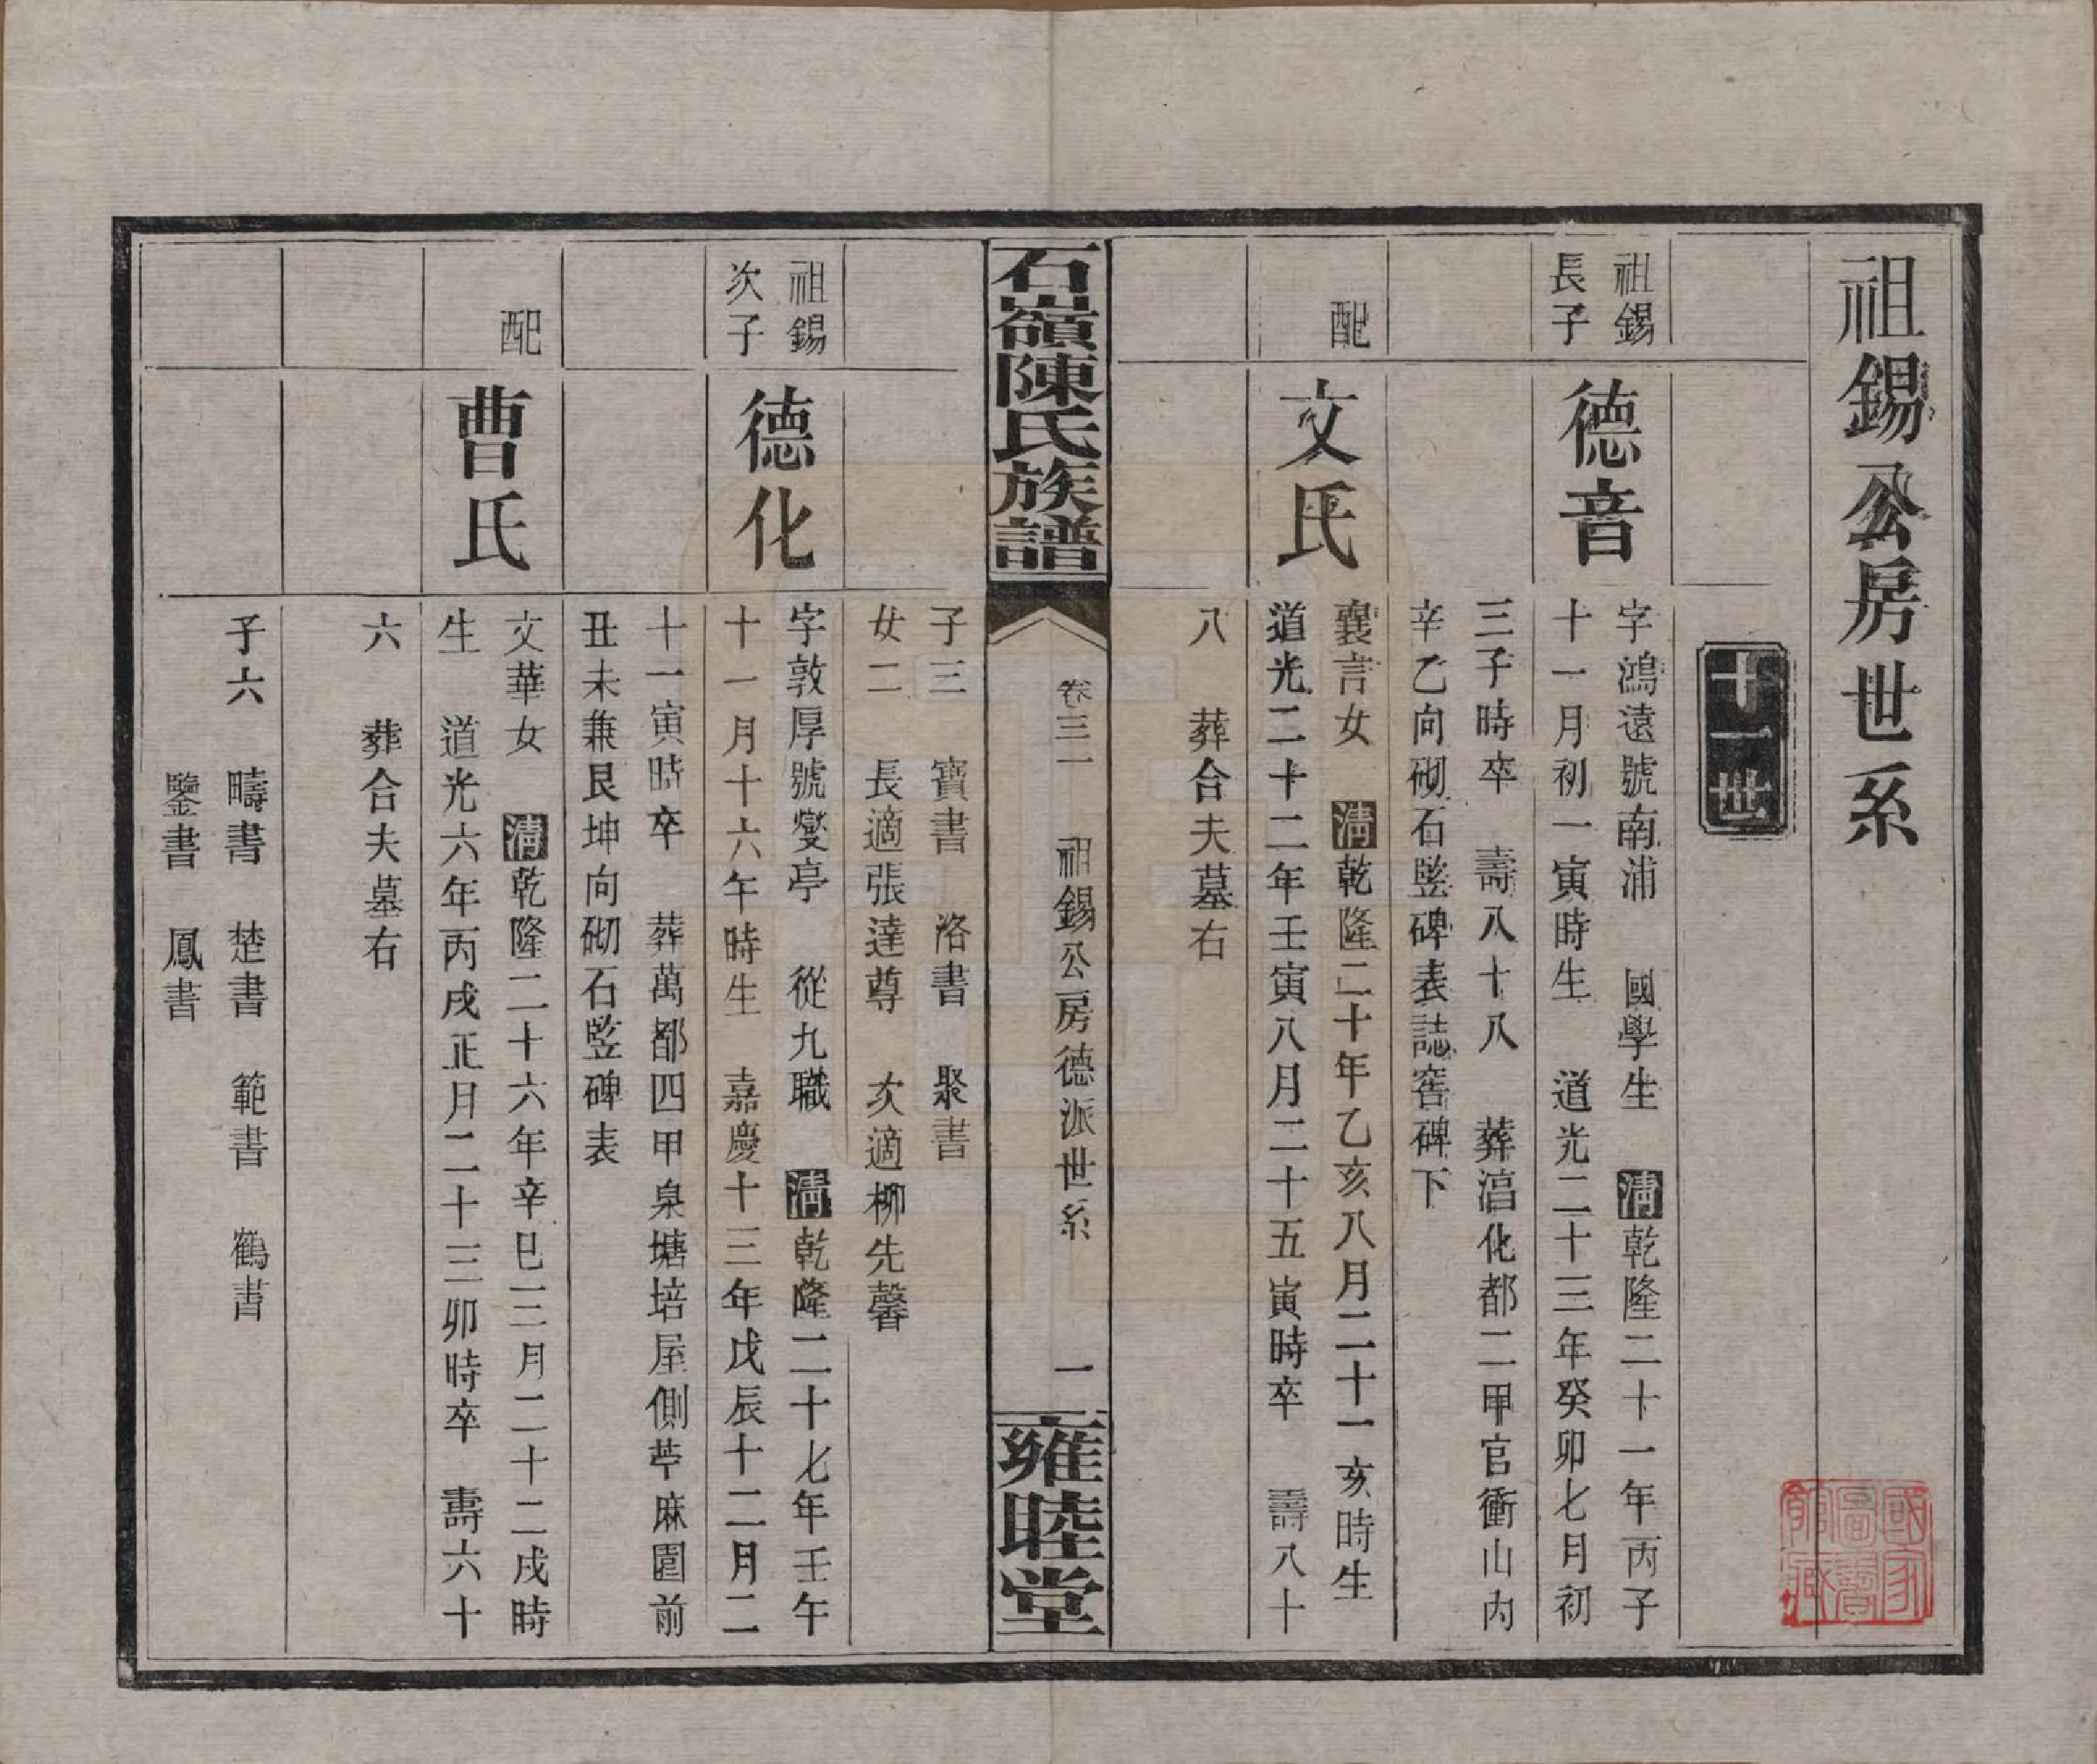 祖錫公房世系
十一世
祖錫
長子
德音
字鴻遠號南浦 國學生 清乾隆二十一年丙子
十一月初一寅時生 道光二十三年癸卯七月初
三子時卒 壽八十八 葬滔化都二甲官衝山內
辛乙向砌石豎碑表誌窖碑下
配
文氏
襄言女 清乾隆二十年乙亥八月二十一亥時生
道光二十二年壬寅八月二十五寅時卒 壽八十
八 葬合夫墓右
石嶺陳氏族譜
卷三一 祖錫公房德派世系 一
雍睦堂
子三 寶書 洛書 聚書
女二 長適張達尊 次適柳先馨
祖錫
次子
德化
字敦厚號燮亭 從九職 清乾隆二十七年壬午
十一月十六午時生 嘉慶十三年戊辰十二月二
十一寅時卒 葬萬都四甲泉塘培屋側苧麻園前
丑未兼艮坤向砌石豎碑表
配
曹氏
文華女 清乾隆二十六年辛巳三月二十二戌時
生 道光六年丙戌正月二十三卯時卒 壽六十
六 葬合夫墓右
子六 疇書 楚書 範書 鶴書
鑒書 鳳書
國家
圖書
館藏